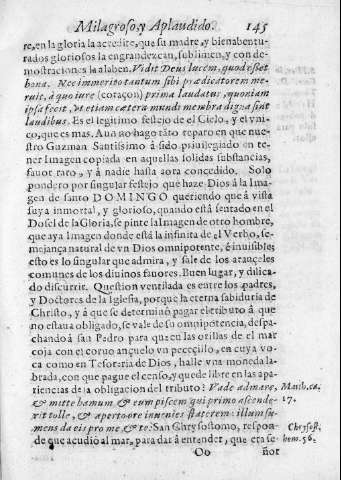 Milagroso, y Aplaudido. 145
re, en la gloria la acredite, que su madre, y bienabentu-
rados gloriosos la engrandezcan, sublimen, y con de-
mostraciones la alaben. Vidit Deus lucem, quod esset
bona. Nec immerito tantum sibi prædicatorem me-
ruit, à quo iure (coraçon) prima laudatur, quoniam
ipsa fecit, vt etiam cætera mundi membra digna sint
laudibus. Es el legitimo festejo de el Cielo, y el vni-
co, que es mas. Aun no hago tãto reparo en que nue-
stro Guzman Santissimo à sido priuilegiado en te-
ner Imagen copiada en aquellas solidas substancias,
fauor raro, y à nadie hasta aora concedido. Solo
pondero por singular festejo que haze Dios à la Ima-
gen de santo DOMINGO queriendo que à vista
suya inmortal, y glorioso, quando está sentado en el
Dosel de la Gloria, se pinte la Imagen de otro hombre,
que aya Imagen donde está la infinita de el Verbo, se-
mejança natural de vn Dios omnipotente, è inuisible;
esto es lo singular que admira, y sale de los aranceles
comunes de los diuinos fauores. Buen lugar, y dilica-
do discurrir. Question ventilada es entre los padres,
y Doctores de la Iglesia, porque la eterna sabiduria de
Christo, y à que se determinò pagar el tributo à que
no estaua obligado, se vale de su omnipotencia, despa-
chando à san Pedro para que en las orillas de el mar
coja con el coruo ançuelo vn pececillo, en cuya vo-
ca como en Tesoreria de Dios, halle vna moneda la-
brada, con que pague el censo, y quede libre en las apa-
riencias de la obligacion del tributo? Vade ad mare, Matth. ca.
& mitte hamum & eum piscem qui primo ascende- 17.
rit tolle, & aperto ore inuenies staterem: illum su-
mens da eis pro me & te: San Chrysostomo, respon- Chrysost.
de que acudiò al mar, para dàr à entender, que era se- hom. 56.
Oo ñor